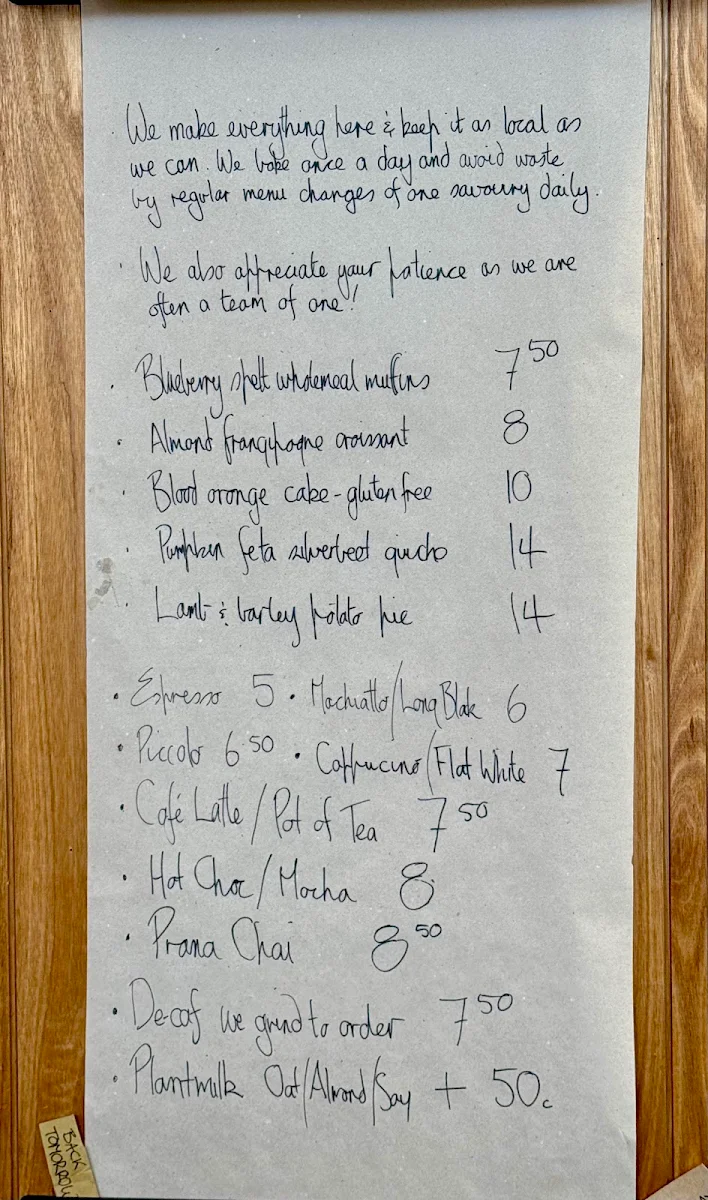 We make everything here & keep it as local as
we can. We bake once a day and avoid waste
by regular menu changes of one savoury daily.
· We also appreciate your patience as we are
often a team of one!
· Blueberry spelt wholemeal mufins 7 50
· Almond frangipagne croissant 8
· Blood orange cake - gluten free 10
· Pumpkin feta silverbeet quiche 14
· Lamb & barley potato pie 14
· Espresso 5 · Machiatto/Long Blak 6
· Piccolo 6 50 · Cappuccino/Flat White 7
· Café Latte / Pot of Tea 7 50
· Hot Choc / Mocha 8
· Prana Chai 8 50
· Decaf we grind to order 7 50
· Plantmilk Oat/Almond/Soy + 50c
BACK
TOMORROW